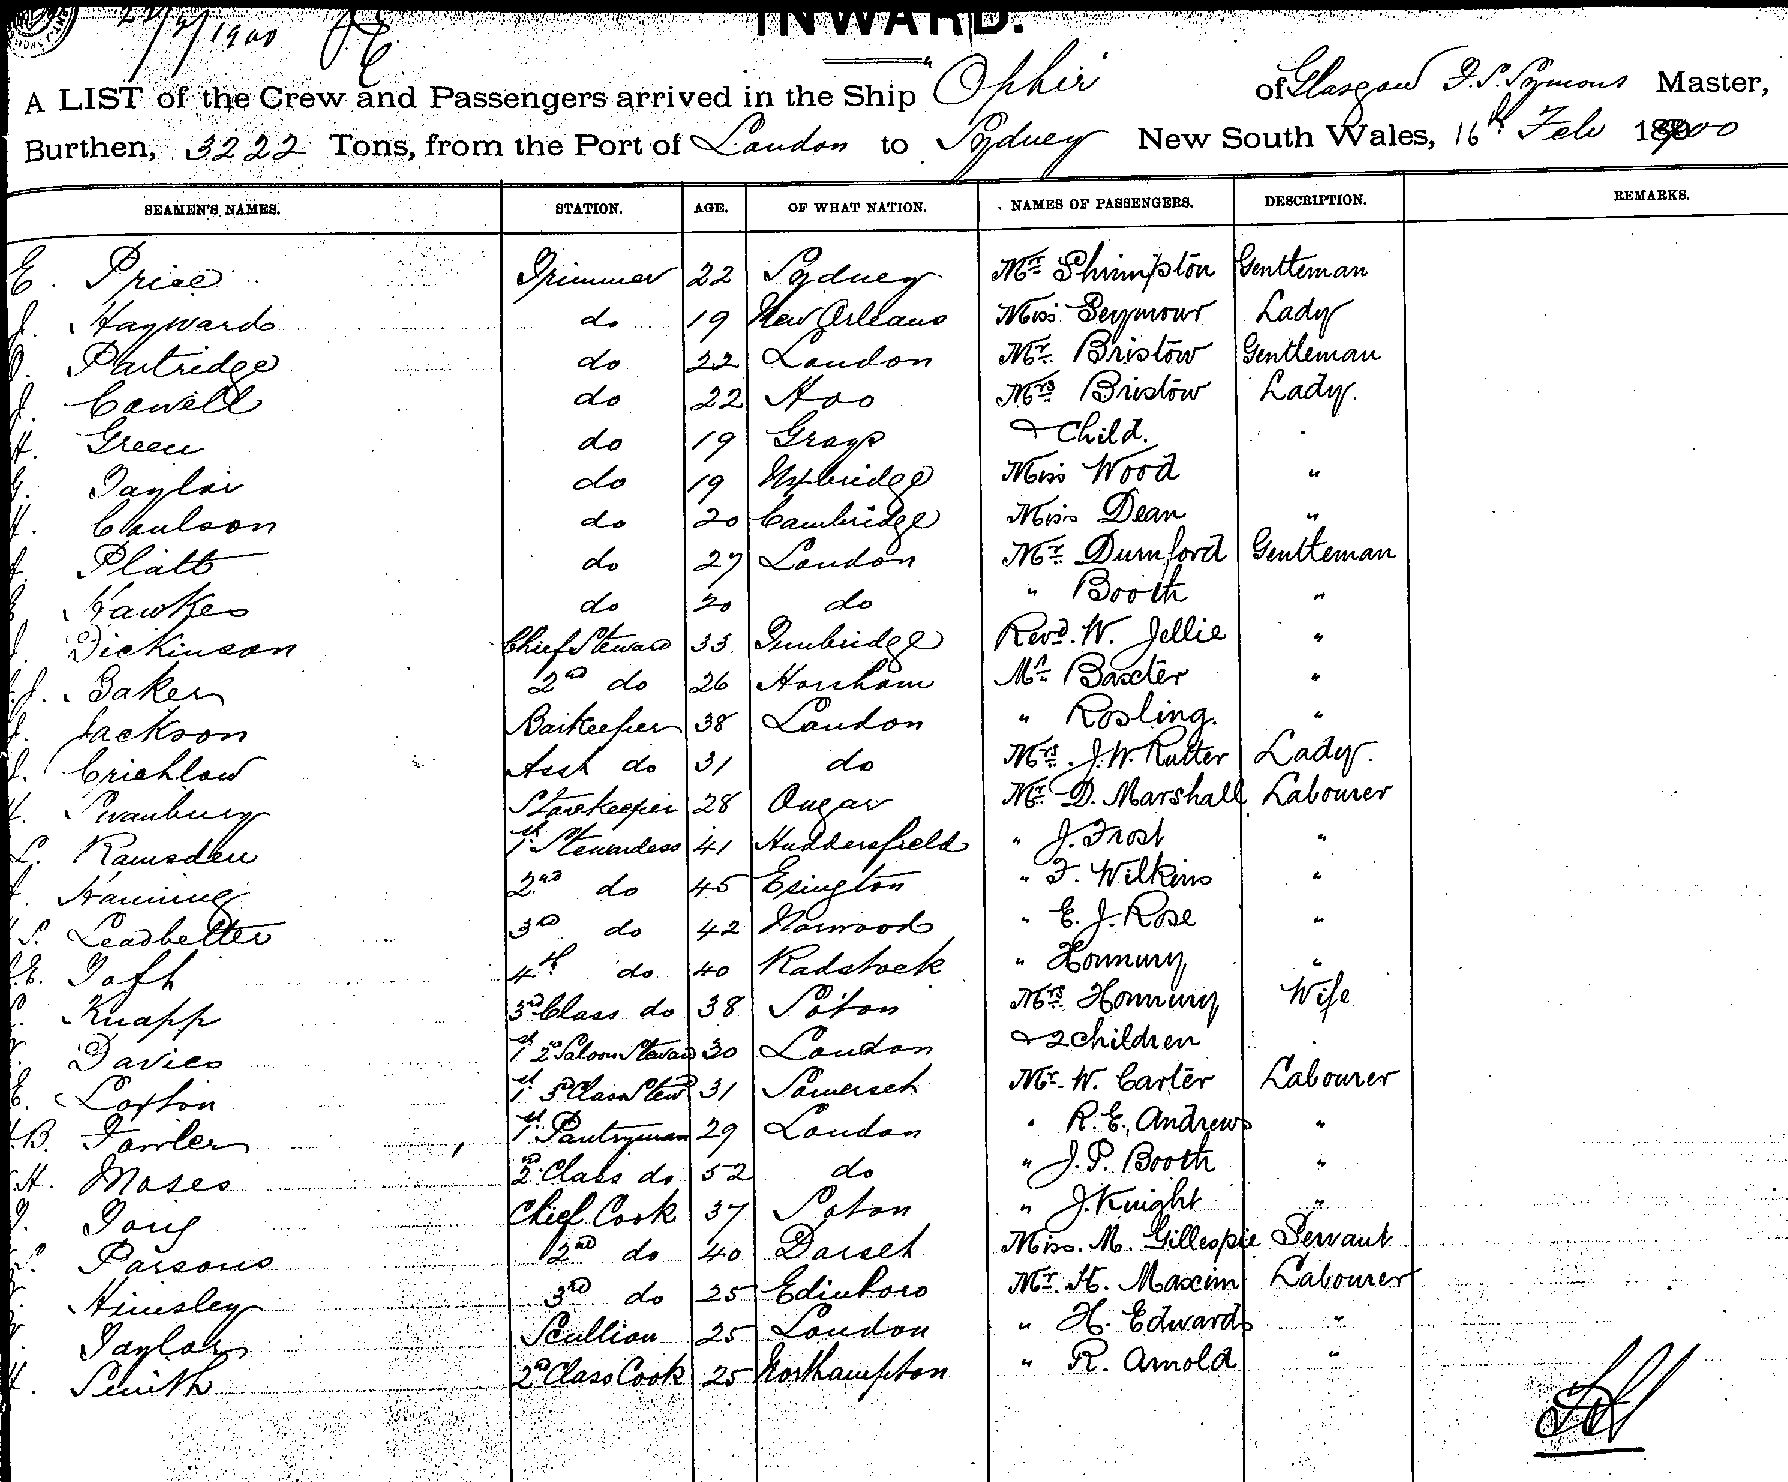 1900
INWARD.
A LIST of the Crew and Passengers arrived in the Ship "Ophir of Glasgow Symons Master,
Burthen, 3222 Tons, from the Port of London to Sydney New South Wales, 16th Feb 1900
SEAMEN'S NAMES. STATION. AGE. OF WHAT NATION. NAMES OF PASSENGERS. DESCRIPTION. REMARKS.
E. Price Trimmer 22 Sydney Mr Shimpton Gentleman
J. Hayward do 19 New Orleans Miss Seymour Lady
Partridge do 22 London Mr Bristow Gentleman
J. Cavell do 22 Hoo Mrs Bristow Lady.
H. Green do 19 Grays & Child.
G. Taylor do 19 Uxbridge Miss Wood "
H. Coulson do 20 Cambridge Miss Dean "
Platt do 27 London Mr Durnford Gentleman
Hawkes do 20 do " Booth "
Dickinson Chief Steward 33 Tunbridge Revd. W. Jellie "
J. Baker 2nd do 26 Horsham Mr Baxter "
J. Jackson Barkeeper 38 London " Rosling. "
J. Crichlow Asst do 31 do Mrs J. W. Rutter Lady.
H. Swanbury Storekeeper 28 Ongar Mr D. Marshall Labourer
L. Ramsden 1st Stewardess 41 Huddersfield " J. Frost "
Hanning 2nd do 45 Esington " F. Wilkins "
S. Leadbetter 3rd do 42 Norwood " E. J. Rose "
E. Toft 4th do 40 Radstock " Honnury "
Knapp 3rd Class do 38 Soton Mrs Honnury Wife
Davies 1st 2nd Saloon Steward 30 London & 2 Children
E. Loxton 1st 3rd Class Stew 31 Somerset Mr W. Carter Labourer
B. Fowler 1st Pantryman 29 London " R. E. Andrews "
H. Moses 2nd Class do 52 do " J. P. Booth "
Tong Chief Cook 37 Soton " J. Knight "
Parsons 2nd do 40 Dorset Miss. M. Gillespie Servant
Hinsley 3rd do 25 Edinboro Mr. H. Maxim Labourer
Taylor Scullion 25 London " H. Edwards "
H. Smith 2nd Class Cook 25 Northampton " R. Arnold "